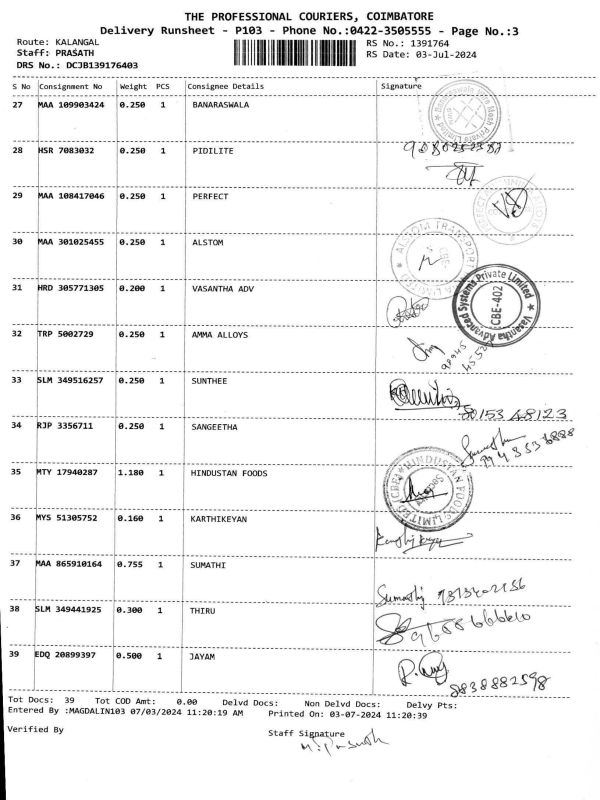 THE PROFESSIONAL COURIERS, COIMBATORE
Delivery Runsheet - P103 - Phone No.:0422-3505555 - Page No.:3
Route: KALANGAL RS No.: 1391764
Staff: PRASATH RS Date: 03-Jul-2024
DRS No.: DCJB139176403
S No Consignment No Weight PCS Consignee Details Signature
27 MAA 109903424 0.250 1 BANARASWALA
28 HSR 7083032 0.250 1 PIDILITE
29 MAA 108417046 0.250 1 PERFECT
30 MAA 301025455 0.250 1 ALSTOM
31 HRD 305771305 0.200 1 VASANTHA ADV
Vasantha Advanced Systems Private Limited
CBE-402
32 TRP 5002729 0.250 1 AMMA ALLOYS
33 SLM 349516257 0.250 1 SUNTHEE
80153 48123
34 RJP 3356711 0.250 1 SANGEETHA
35 MTY 17940287 1.180 1 HINDUSTAN FOODS
HINDUSTAN FOODS LIMITED
36 MYS 51305752 0.160 1 KARTHIKEYAN
37 MAA 865910164 0.755 1 SUMATHI
Sumathi
38 SLM 349441925 0.300 1 THIRU
39 EDQ 20899397 0.500 1 JAYAM
8838882598
Tot Docs: 39 Tot COD Amt: 0.00 Delvd Docs: Non Delvd Docs: Delvy Pts:
Entered By :MAGDALIN103 07/03/2024 11:20:19 AM Printed On: 03-07-2024 11:20:39
Verified By Staff Signature